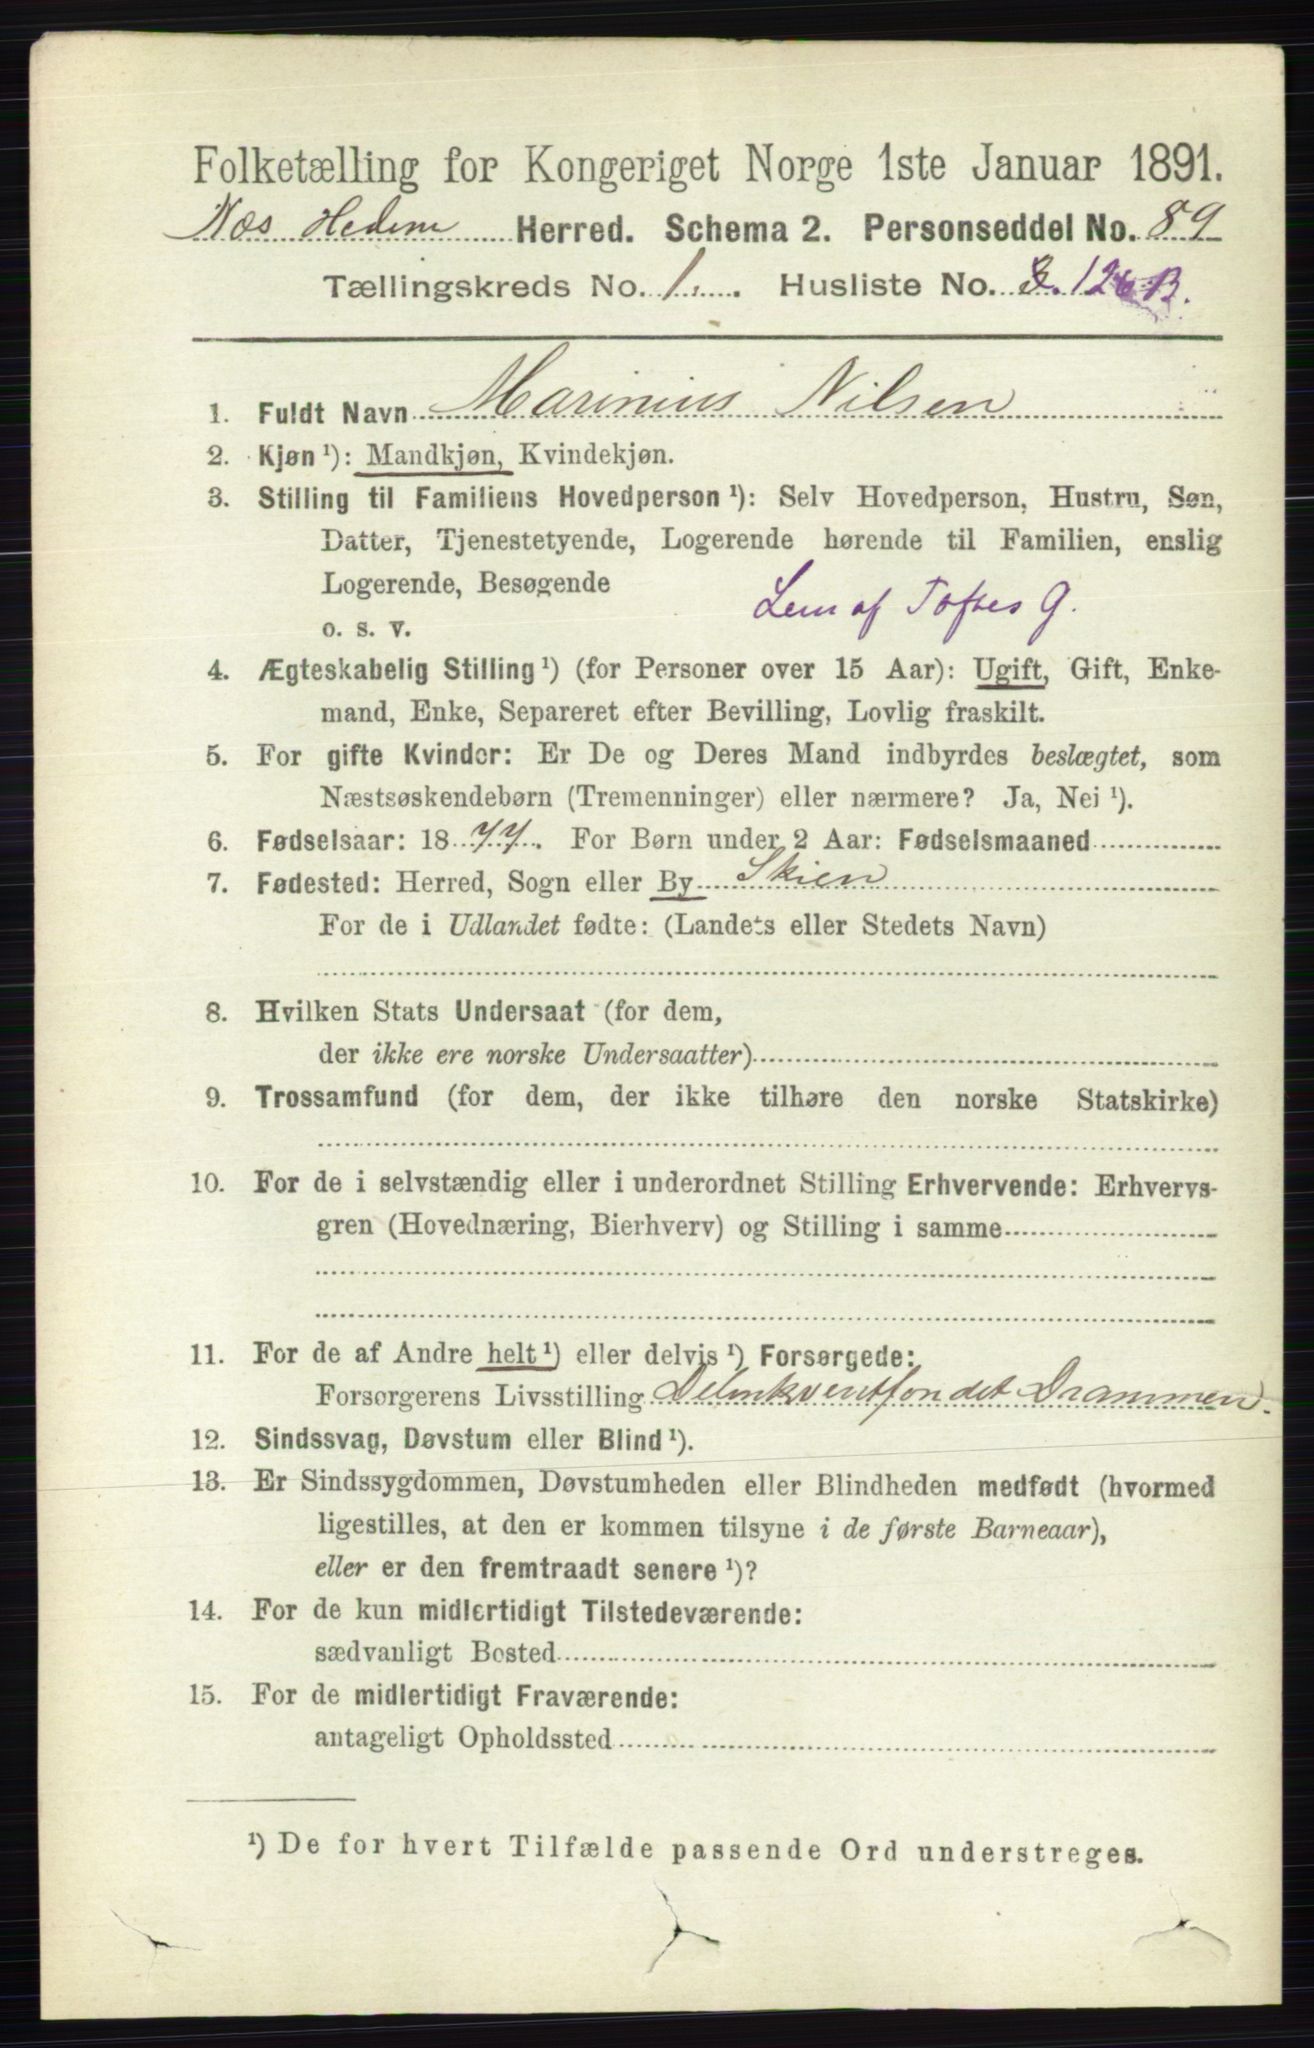 Folketælling for Kongeriget Norge 1ste Januar 1891.
Næs Hedem Herred. Schema 2. Personseddel No. 89
Tællingskreds No. 1. Husliste No. 126 B.
1. Fuldt Navn Marinius Nilsen
2. Kjøn ¹): Mandkjøn, Kvindekjøn.
3. Stilling til Familiens Hovedperson ¹): Selv Hovedperson, Hustru, Søn,
Datter, Tjenestetyende, Logerende hørende til Familien, enslig
Logerende, Besøgende
o. s. v. Lem af Toftes G.
4. Ægteskabelig Stilling ¹) (for Personer over 15 Aar): Ugift, Gift, Enke-
mand, Enke, Separeret efter Bevilling, Lovlig fraskilt.
5. For gifte Kvinder: Er De og Deres Mand indbyrdes beslægtet, som
Næstsøskendebørn (Tremenninger) eller nærmere? Ja, Nei ¹).
6. Fødselsaar: 1877. For Børn under 2 Aar: Fødselsmaaned
7. Fødested: Herred, Sogn eller By Skien
For de i Udlandet fødte: (Landets eller Stedets Navn)
8. Hvilken Stats Undersaat (for dem,
der ikke ere norske Undersaatter)
9. Trossamfund (for dem, der ikke tilhøre den norske Statskirke)
10. For de i selvstændig eller i underordnet Stilling Erhvervende: Erhvervs-
gren (Hovednæring, Bierhverv) og Stilling i samme
11. For de af Andre helt ¹) eller delvis ¹) Forsørgede:
Forsørgerens Livsstilling Delinkventfondet Drammen.
12. Sindssvag, Døvstum eller Blind ¹).
13. Er Sindssygdommen, Døvstumheden eller Blindheden medfødt (hvormed
ligestilles, at den er kommen tilsyne i de første Barneaar),
eller er den fremtraadt senere ¹)?
14. For de kun midlertidigt Tilstedeværende:
sædvanligt Bosted
15. For de midlertidigt Fraværende:
antageligt Opholdssted
¹) De for hvert Tilfælde passende Ord understreges.